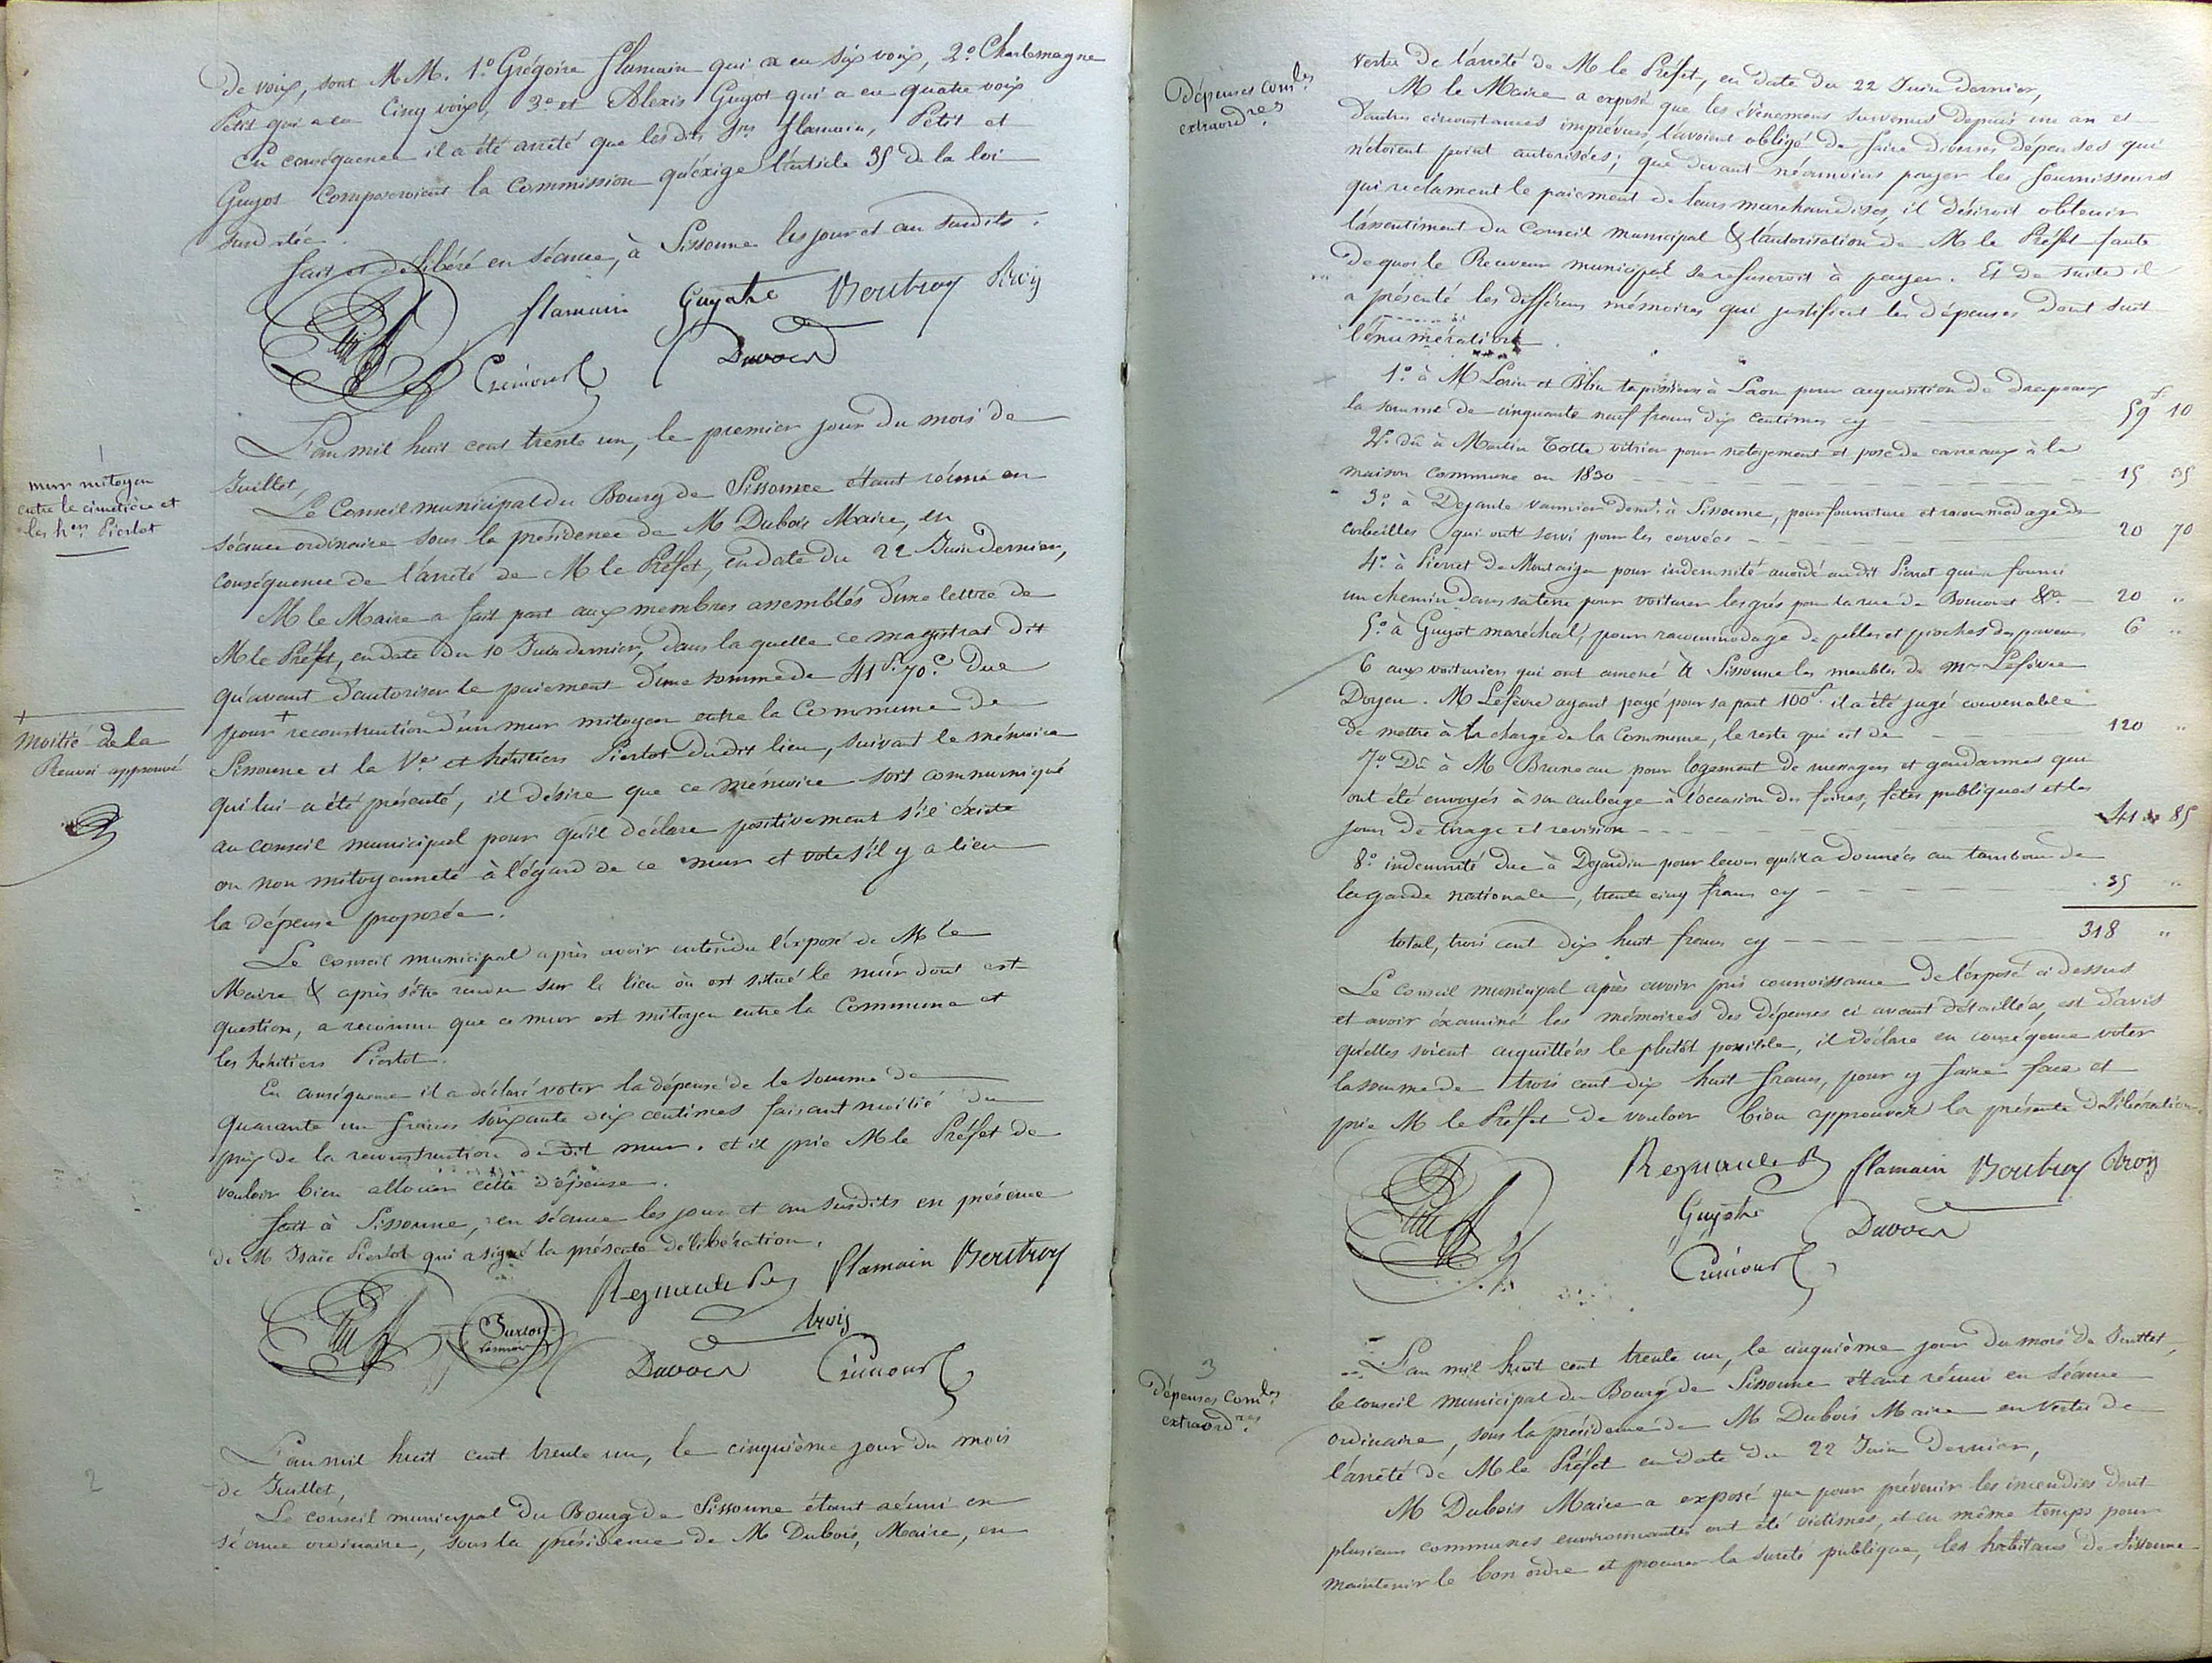 de voix, sont MM. 1.° Grégoire flamain qui a eu six voix, 2.° Charlemagne
Petit qui a eu Cinq voix, 3.° et Alexis Guyot qui a eu quatre voix
En conséquence il a été arrêté que les dits Srs flamain, Petit et
Guyot Composeroient la Commission qu'exige l'article 35 de la loi
susdatée.
fait et délibéré en séance, à Sissonne les jour et an susdits.
flamain Guyot Boutroy Aroy
Crémont Davoen
L'an mil huit cent trente un, le premier jour du mois de
Juillet,
mur mitoyen
entre le cimetière et
les hers Pierlot
Le Conseil municipal du Bourg de Sissonne étant réuni en
séance ordinaire sous la présidence de M Dubois Maire, en
conséquence de l'arrêté de M le Préfet, en date du 22 Juin dernier,
M le Maire a fait part aux membres assemblés d'une lettre de
M le Préfet, en date du 10 Juin dernier, dans laquelle ce magistrat dit
qu'avant d'autoriser le paiement d'une somme de 41 f. 70 c. due
pour + reconstruction d'un mur mitoyen entre la Commune de
+ moitié de la
Renvoi approuvé
Sissonne et la Ve et héritiers Pierlot dudit lieu, suivant le mémoire
qui lui a été présenté, il désire que ce mémoire soit communiqué
au conseil municipal pour qu'il déclare positivement s'il éxiste
ou non mitoyenneté à l'égard de ce mur et vote s'il y a lieu
la dépense proposée.
Le conseil municipal après avoir entendu l'éxposé de M le
Maire & après s'être rendu sur le lieu où est situé le mur dont est
question, a reconnu que ce mur est mitoyen entre la Commune et
les héritiers Pierlot.
En conséquence il a déclaré voter la dépense de la somme de
quarante un francs soixante dix centimes faisant moitié du
prix de la reconstruction du dit mur. et il prie M le Préfet de
vouloir bien allouer cette dépense.
fait à Sissonne, en séance les jour et an susdits en présence
de M Isaïe Pierlot qui a signé la présente délibération.
flamain Boutroy
Aroy
Davoen Crémont
2
L'an mil huit cent trente un, le cinquième jour du mois
de Juillet,
Le conseil municipal du Bourg de Sissonne étant réuni en
séance ordinaire, sous la présidence de M Dubois, Maire, en
vertu de l'arrêté de M le Préfet, en date du 22 Juin dernier,
dépenses comles
extraordres
M le Maire a exposé que les évènemens survenus depuis un an et
d'autres circonstances imprévues, l'avoient obligé de faire diverses dépenses qui
n'étoient point autorisées; que devant néanmoins payer les fournisseurs
qui réclament le paiement de leurs marchandises, il désiroit obtenir
l'assentiment du Conseil municipal & l'autorisation de M le Préfet faute
de quoi le Receveur municipal se refuseroit à payer. Et de suite il
a présenté les différens mémoires qui justifient les dépenses dont suit
l'énumération.
1.° à M Lorin et tapissiers à Laon pour acquisition de drapeaux
la somme de cinquante neuf francs dix centimes cy 59 f 10
2.° dû à Martin Cotte vitrier pour netoyement et pose de carreaux à la
maison commune en 1830 15 35
3.° à Dejante vannier demt à Sissonne, pour fourniture et racommodage de
corbeilles qui ont servi pour les corvées 20 70
4.° à Pierret de Montaigu pour indemnité accordé audit Pierret qui a fourni
un chemin dans sa terre pour voiturer les grés pour la rue de &a 20 "
5.° à Guyot maréchal, pour racommodage de pelles et pioches des paveurs 6 "
6 aux voituriers qui ont amené à Sissonne les meubles de Mr Lefèvre
Doyen. M Lefèvre ayant payé pour sa part 100 f. il a été jugé convenable
de mettre à la charge de la Commune, le reste qui est de 120 "
7.° Dû à M Bruneau pour logement de messagers et gendarmes qui
ont été envoyés à son auberge à l'occasion des foires, fêtes publiques et les
jours de tirage et revision 41 85
8.° indemnité due à Dejardin pour leçons qu'il a données au tambour de
la garde nationale, trente cinq francs cy 35 "
total, trois cent dix huit francs cy 318 "
Le conseil municipal après avoir pris connoissance de l'éxposé ci dessus
et avoir éxaminé les mémoires des dépenses ci avant détaillées, est d'avis
qu'elles soient acquittées le plutôt possible, il déclare en conséquence voter
la somme de trois cent dix huit francs, pour y faire face et
prie M le Préfet de vouloir bien approuver la présente délibération.
flamain Boutroy Aroy
Guyot Davoen
Crémont
3
dépenses comles
extraordres
L'an mil huit cent trente un, le cinquième jour du mois de Juillet,
le conseil municipal du Bourg de Sissonne étant réuni en séance
ordinaire, sous la présidence de M Dubois Maire en vertu de
l'arrêté de M le Préfet en date du 22 Juin dernier,
M Dubois Maire a exposé que pour prévenir les incendies dont
plusieurs communes environnantes ont été victimes, et en même temps pour
maintenir le bon ordre et procurer la sureté publique, les habitans de Sissonne